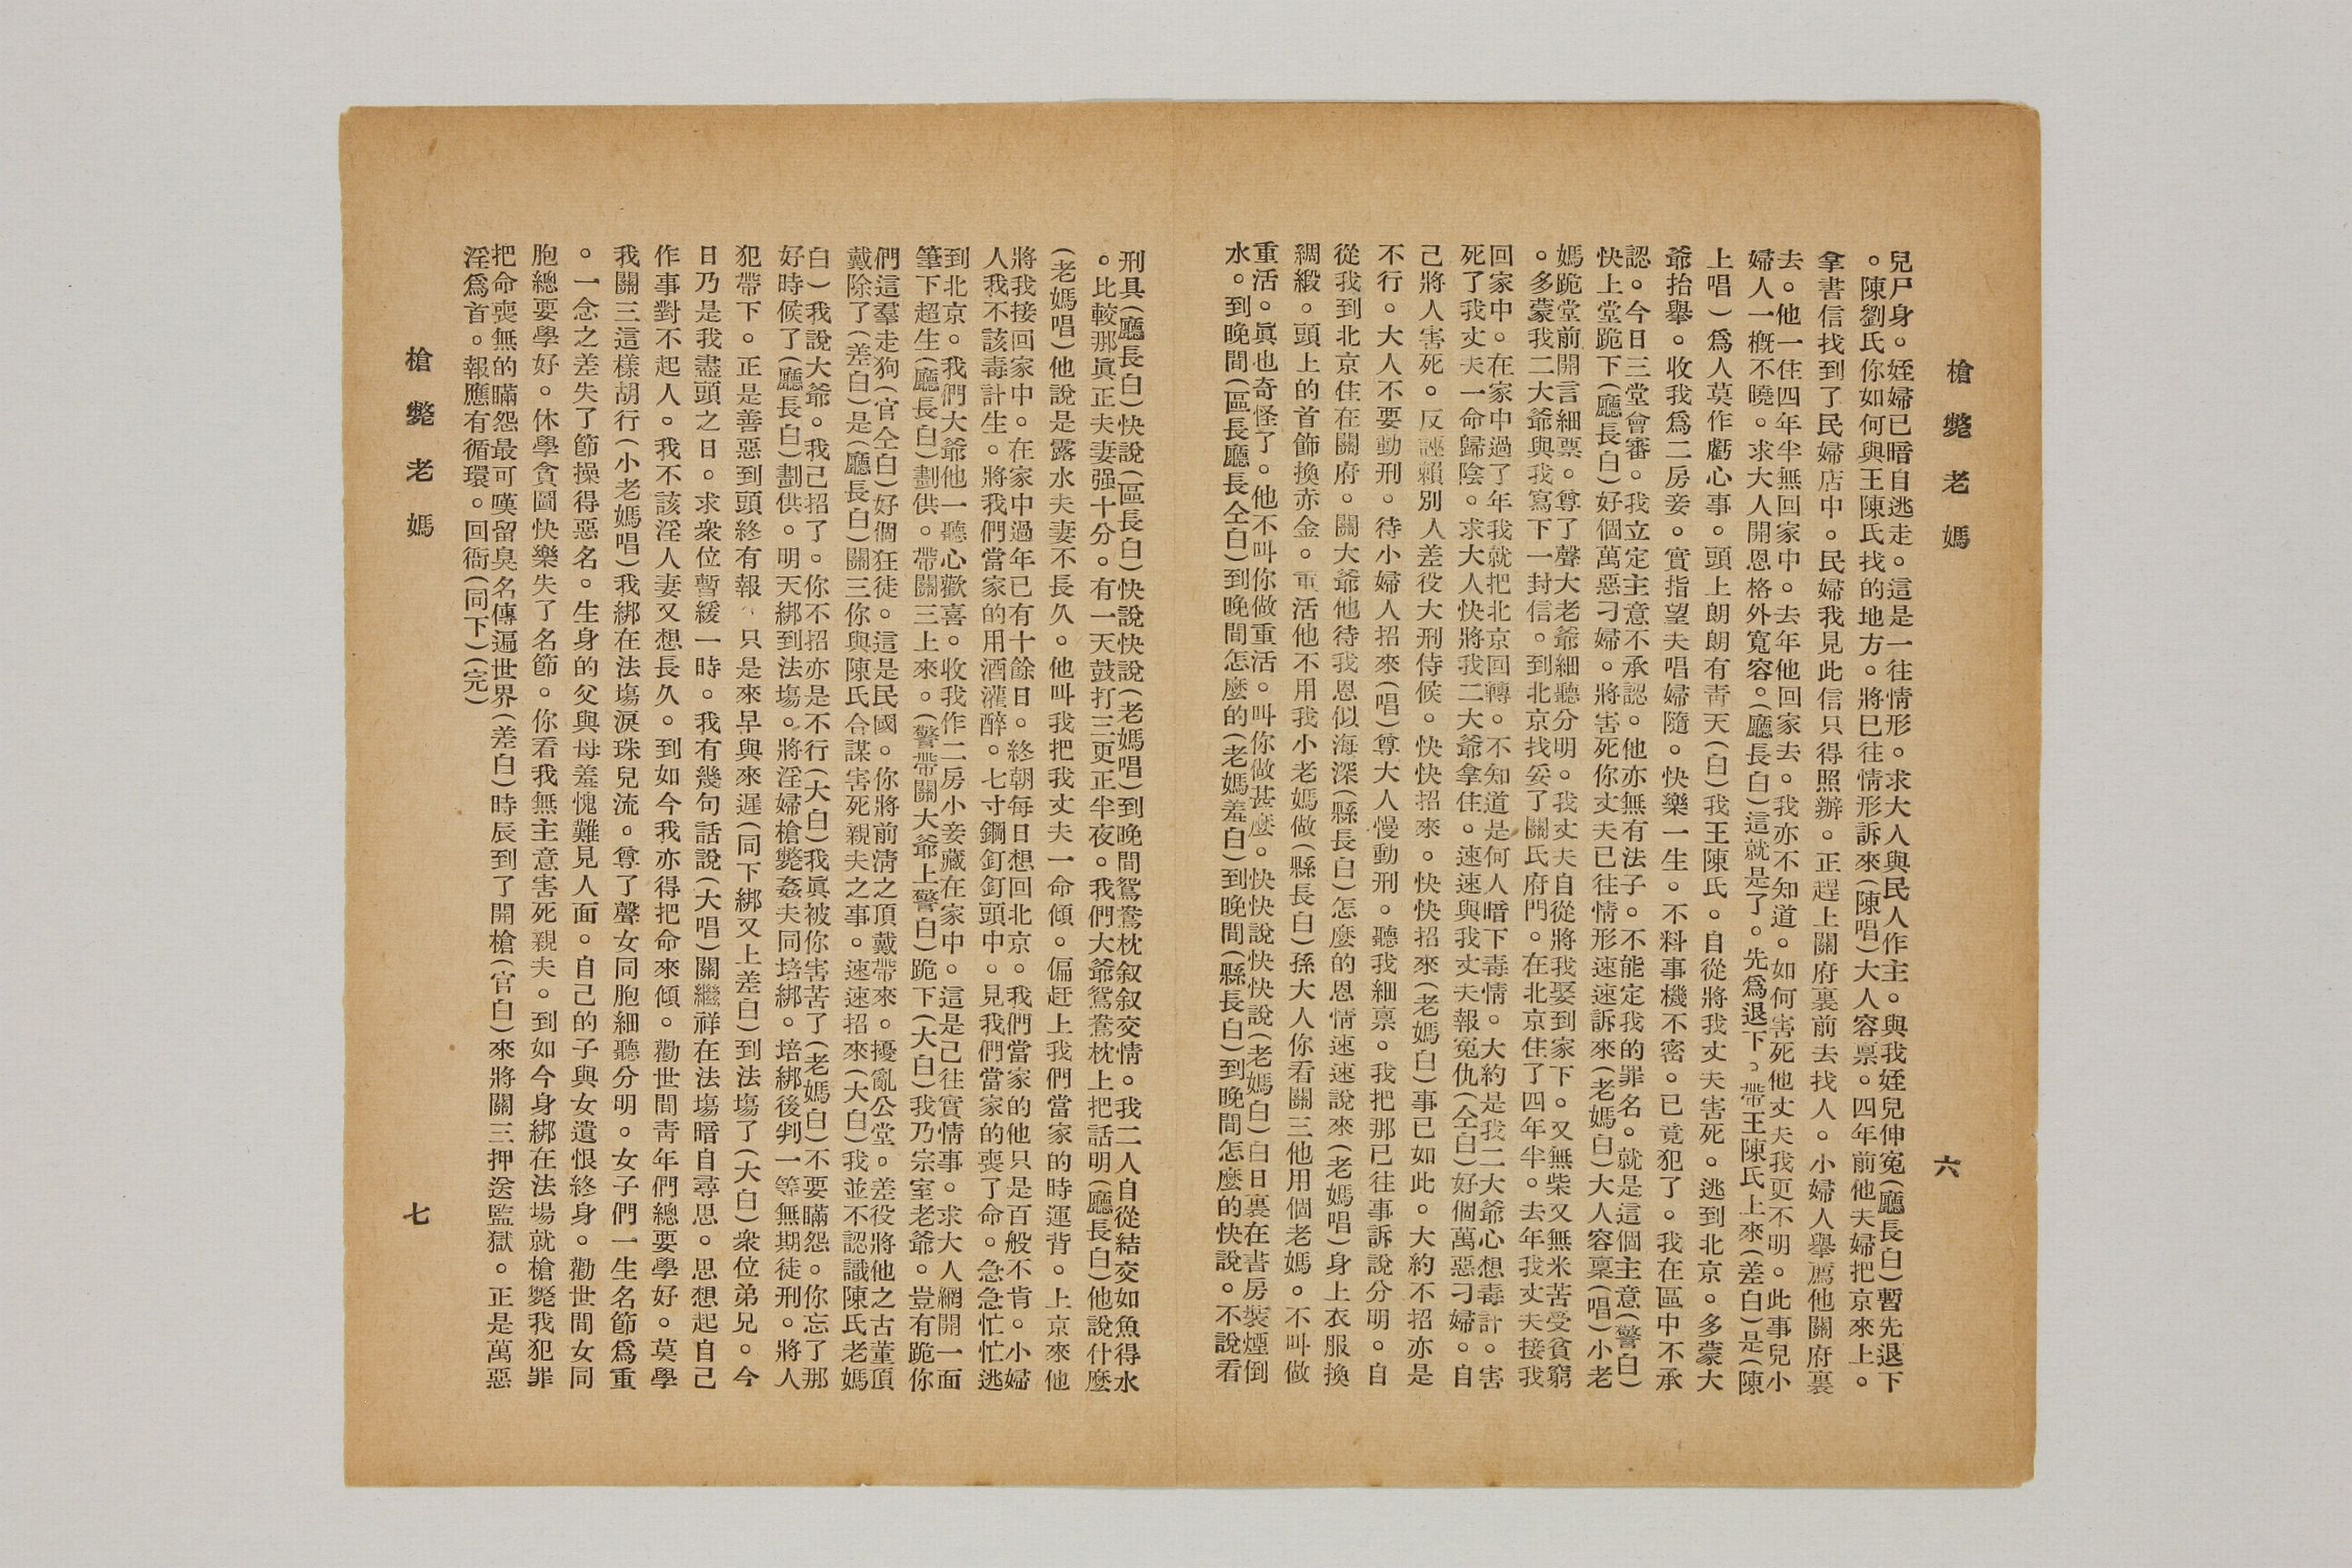 槍斃老媽 六
兒尸身。姪婦已暗自逃走。這是一往情形。求大人與民人作主。與我姪兒伸冤(廳長白)暫先退下
。陳劉氏你如何與王陳氏找的地方。將巳往情形訴來(陳唱)大人容禀。四年前他夫婦把京來上。
拿書信找到了民婦店中。民婦我見此信只得照辦。正趕上關府裏前去找人。小婦人舉薦他關府裏
去。他一住四年半無回家中。去年他回家去。我亦不知道。如何害死他丈夫我更不明。此事兒小
婦人一概不曉。求大人開恩格外寬容。(廳長白)這就是了。先爲退下。帶王陳氏上來(差白)是(陳
上唱)爲人莫作虧心事。頭上朗朗有靑天(白)我王陳氏。自從將我丈夫害死。逃到北京。多蒙大
爺抬舉。收我爲二房妾。實指望夫唱婦隨。快樂一生。不料事機不密。已竟犯了。我在區中不承
認。今日三堂會審。我立定主意不承認。他亦無有法子。不能定我的罪名。就是這個主意(警白)
快上堂跪下(廳長白)好個萬惡刁婦。將害死你丈夫已往情形速速訴來(老媽白)大人容稟(唱)小老
媽跪堂前開言細票。尊了聲大老爺細聽分明。我丈夫自從將我娶到家下。又無柴又無米苦受貧窮
。多蒙我二大爺與我寫下一封信。到北京找妥了關氏府門。在北京住了四年半。去年我丈夫接我
回家中。在家中過了年我就把北京回轉。不知道是何人暗下毒情。大約是我二大爺心想毒計。害
死了我丈夫一命歸陰。求大人快將我二大爺拿住。速速與我丈夫報冤仇(仝白)好個萬惡刁婦。自
己將人害死。反誣賴別人差役大刑侍候。快快招來。快快招來(老媽白)事已如此。大約不招亦是
不行。大人不要動刑。待小婦人招來(唱)尊大人慢動刑。聽我細禀。我把那已往事訴說分明。自
從我到北京住在關府。關大爺他待我恩似海深(縣長白)怎麼的恩情速速說來(老媽唱)身上衣服換
綢緞。頭上的首飾換赤金。重活他不用我小老媽做(縣長白)孫大人你看關三他用個老媽。不叫做
重活。眞也奇怪了。他不叫你做重活。叫你做甚麼。快快說快快說(老媽白)白日裏在書房裝煙倒
水。到晚間(區長廳長仝白)到晚間怎麼的(老媽羞白)到晚間(縣長白)到晚間怎麼的快說。不說看
刑具(廳長白)快說(區長白)快說快說(老媽唱)到晚間鴛鴦枕叙叙交情。我二人自從結交如魚得水
。比較那眞正夫妻强十分。有一天鼓打三更正半夜。我們大爺鴛鴦枕上把話明(廳長白)他說什麼
(老媽唱)他說是露水夫妻不長久。他叫我把我丈夫一命傾。偏赶上我們當家的時運背。上京來他
將我接回家中。在家中過年已有十餘日。終朝每日想回北京。我們當家的他只是百般不肯。小婦
人我不該毒計生。將我們當家的用酒灌醉。七寸鋼釘釘頭中。見我們當家的喪了命。急急忙忙逃
到北京。我們大爺他一聽心歡喜。收我作二房小妾藏在家中。這是已往實情事。求大人網開一面
筆下超生(廳長白)劃供。帶關三上來。(警帶關大爺上警白)跪下(大白)我乃宗室老爺。豈有跪你
們這羣走狗(官仝白)好個狂徒。這是民國。你將前淸之頂戴帶來。擾亂公堂。差役將他之古董頂
戴除了(差白)是(廳長白)關三你與陳氏合謀害死親夫之事。速速招來(大白)我並不認識陳氏老媽
白)我說大爺。我己招了。你不招亦是不行(大白)我眞被你害苦了(老媽白)不要瞞怨。你忘了那
好時候了(廳長白)劃供。明天綁到法塲。將淫婦槍斃姦夫同培綁。培綁後判一等無期徒刑。將人
犯帶下。正是善惡到頭終有報、只是來早與來遲(同下綁又上差白)到法塲了(大白)衆位弟兄。今
日乃是我盡頭之日。求衆位暫緩一時。我有幾句話說(大唱)關繼祥在法塲暗自尋思。思想起自己
作事對不起人。我不該淫人妻又想長久。到如今我亦得把命來傾。勸世間靑年們總要學好。莫學
我關三這樣胡行(小老媽唱)我綁在法塲淚珠兒流。尊了聲女同胞細聽分明。女子們一生名節爲重
。一念之差失了節操得惡名。生身的父與母羞愧難見人面。自己的子與女遺恨終身。勸世間女同
胞總要學好。休學貪圖快樂失了名節。你看我無主意害死親夫。到如今身綁在法場就槍斃我犯罪
把命喪無的瞞怨最可嘆留臭名傳遍世界(差白)時辰到了開槍(官白)來將關三押送監獄。正是萬惡
淫爲首。報應有循環。回衙(同下)(完)
槍斃老媽 七